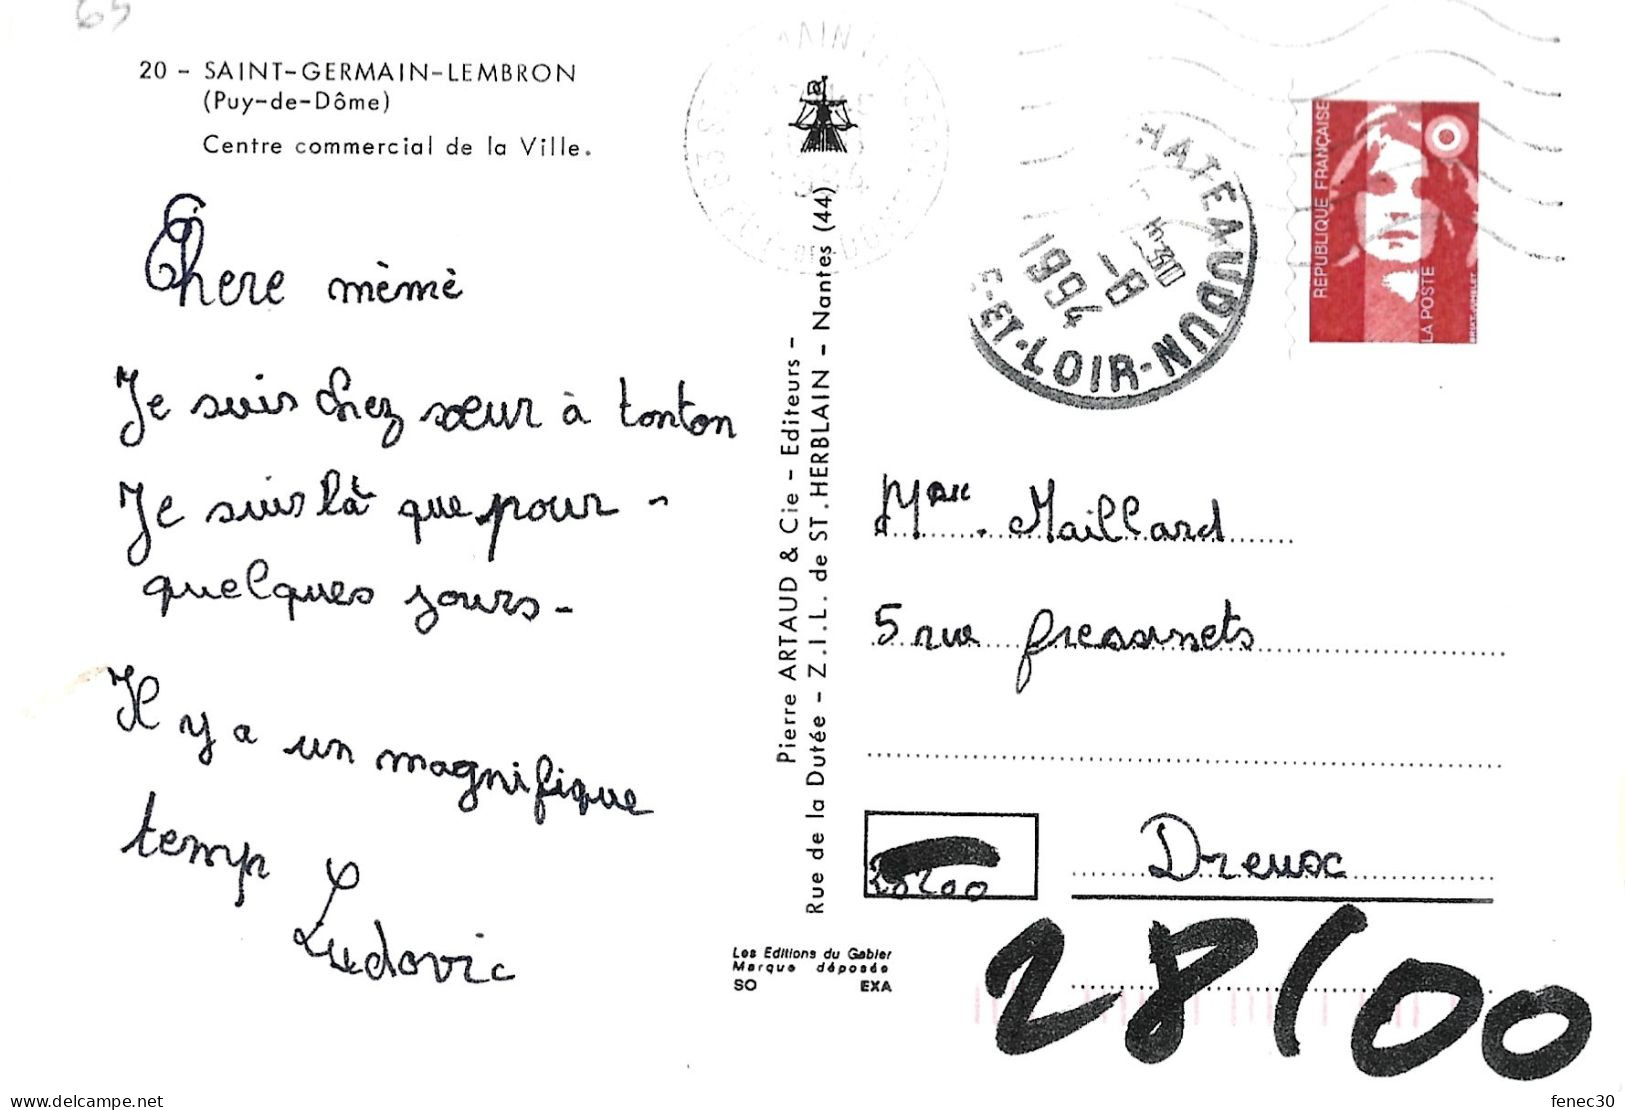 65
20 - SAINT-GERMAIN-LEMBRON
(Puy-de-Dôme)
Centre commercial de la Ville.
Chere mèmè
Je suis chez sœur à tonton
Je suis là que pour -
quelques jours -
Il y a un magnifique
temp
Ludovic
Pierre ARTAUD & Cie - Editeurs -
Rue de la Dutée - Z.I.L. de ST. HERBLAIN - Nantes (44)
Les Editions du Gabier
Marque déposée
SO EXA
HATEAUDUN
1994
-8
E-ET-LOIR
REPUBLIQUE FRANÇAISE
LA POSTE
Mme. Maillard
5 rue
Dreux
28100
delcampe.net
fenec30